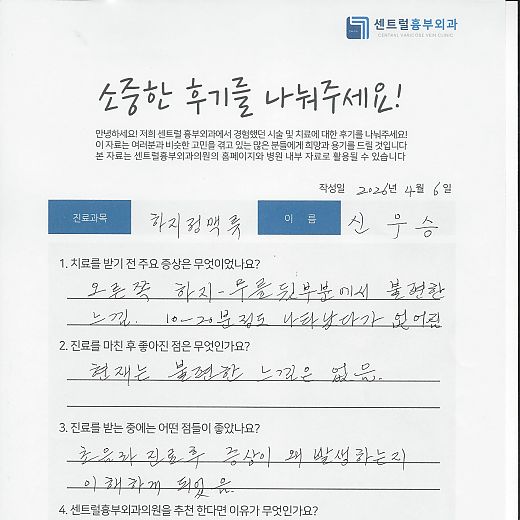 센트럴흉부외과
CENTRAL VARICOSE VEIN CLINIC
소중한 후기를 나눠주세요!
안녕하세요! 저희 센트럴 흉부외과에서 경험했던 시술 및 치료에 대한 후기를 나눠주세요!
이 자료는 여러분과 비슷한 고민을 겪고 있는 많은 분들에게 희망과 용기를 드릴 것입니다
본 자료는 센트럴흉부외과의원의 홈페이지와 병원 내부 자료로 활용될 수 있습니다
작성일 2026년 4월 6일
진료과목 하지정맥류 이 름 신우승
1. 치료를 받기 전 주요 증상은 무엇이었나요?
오른쪽 하지-무릎 뒷부분에서 불편한
느낌. 10-20분정도 나타났다가 없어짐
2. 진료를 마친 후 좋아진 점은 무엇인가요?
현재는 불편한 느낌은 없음.
3. 진료를 받는 중에는 어떤 점들이 좋았나요?
초음파 진료후 증상이 왜 발생하는지
이해하게 되었음.
4. 센트럴흉부외과의원을 추천 한다면 이유가 무엇인가요?